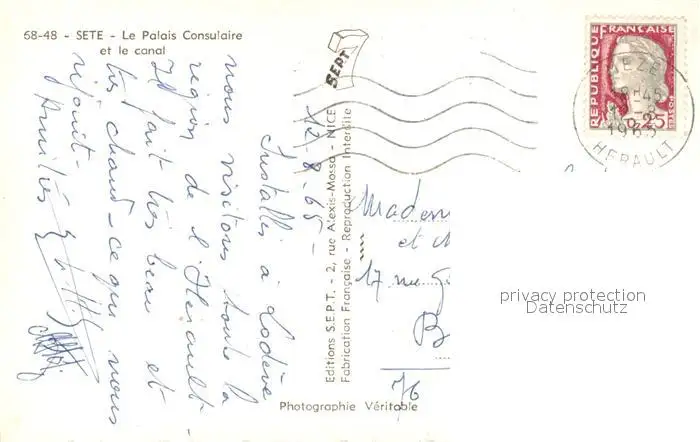 68-48 - SETE - Le Palais Consulaire
et le canal
12.8.65-
Installés à Lodève
nous visitons toute la
région de l'Hérault-
Il fait très beau et
très chaud - ce qui nous
réjouit-
Amitiés
SEPT
Editions S.E.P.T. - 2, rue Alexis-Mossa - NICE
Fabrication Française - Reproduction Interdite
REPUBLIQUE FRANÇAISE
0,25
18H45
HERAULT
Madem
et M
17 rue
B
76
privacy protection
Datenschutz
Photographie Véritable